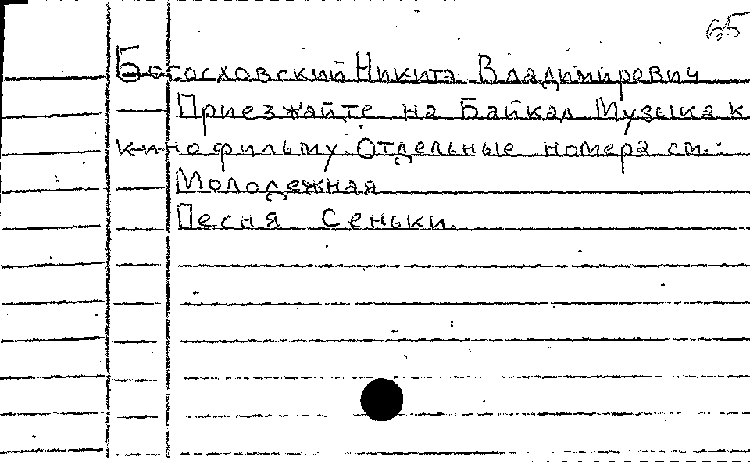 65
Богословский Никита Владимирович
Приезжайте на Байкал Музыка к
кинофильму. Отдельные номера см.:
Молодежная
Песня Сеньки.